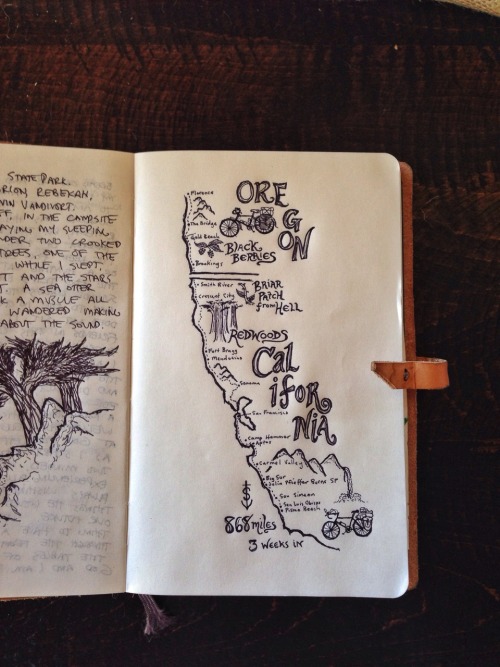 STATE PARK.
REBEKAH,
VIN VANDIVORT.
IN THE CAMPSITE
AYING MY SLEEPING
DER TWO CROOKED
TREES, ONE OF THE
WHILE I SLEPT,
T AND THE STARS
T. A SEA OTTER
K A MUSCLE ALL
WANDERED MAKING
ABOUT THE SOUND.
Florence
ORE
G
ON
The Bridge
Gold Beach
BLACK
BERRIES
Brookings
Smith River
BRIAR
PATCH
from HELL
Crescent City
REDWOODS
Fort Bragg
Mendocino
Cal
ifor
NiA
Sonoma
San Francisco
Camp Hammer
Aptos
Carmel Valley
Big Sur
Julia Pfeiffer Burns SP
San Simeon
San Luis Obispo
Pismo Beach
S
868 miles
3 WEEKS IN